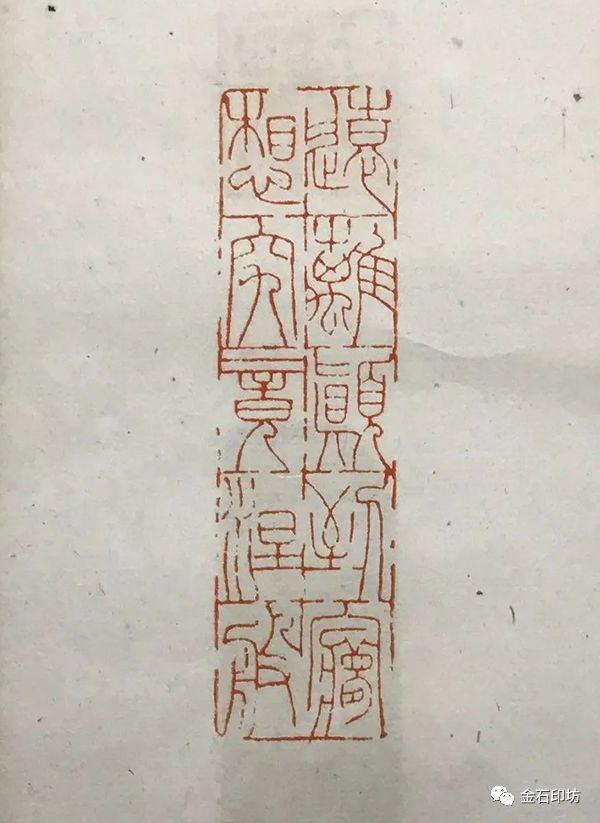 遠離顛倒夢
想究竟涅槃
金石印坊